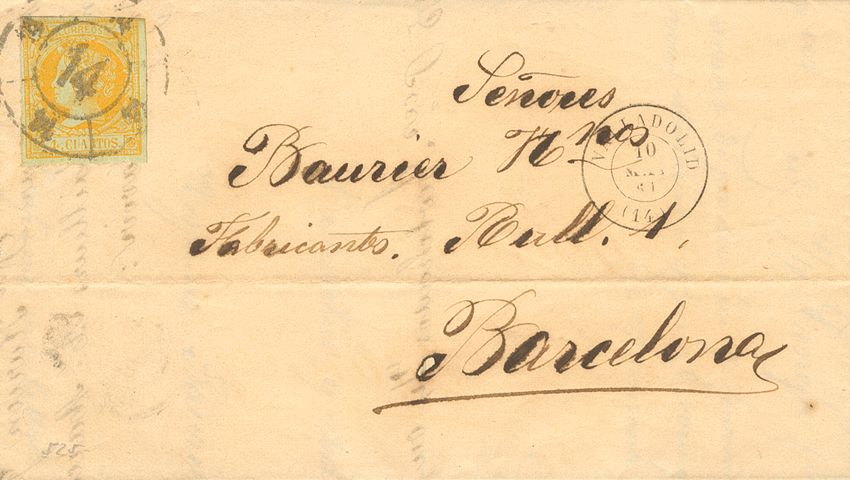 CORREOS
14
4 CUARTOS.
Señores
Baurier Hnos
VALLADOLID
10
61
(14)
Fabricantes. Rull. 1,
Barcelona
525